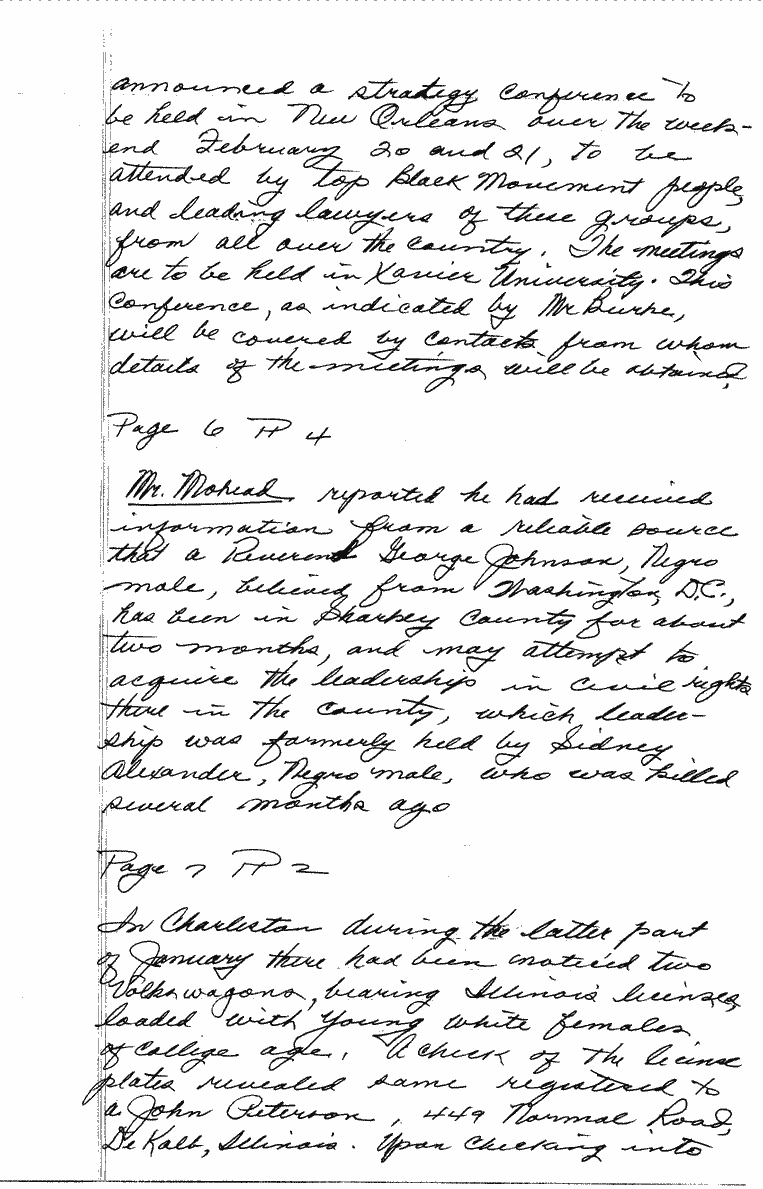 announced a strategy conference to
be held in New Orleans over the week-
end February 20 and 21, to be
attended by top Black Movement people,
and leading lawyers of these groups,
from all over the country. The meetings
are to be held in Xavier University. This
conference, as indicated by Mr Burke,
will be covered by contacts from whom
details of the meetings will be obtained.
Page 6 P 4
Mr. Mohead reported he had received
information from a reliable source
that a Reverend George Johnson, Negro
male, believed from Washington, D.C.,
has been in Sharkey County for about
two months, and may attempt to
acquire the leadership in civil rights
there in the county, which leader-
ship was formerly held by Sidney
Alexander, Negro male, who was killed
several months ago
Page 7 P 2
In Charleston during the latter part
of January there had been noticed two
Volkswagons, bearing Illinois licenses,
loaded with young white females
of college age. A check of the license
plates revealed same registered to
a John Peterson, 449 Normal Road,
DeKalb, Illinois. Upon checking into